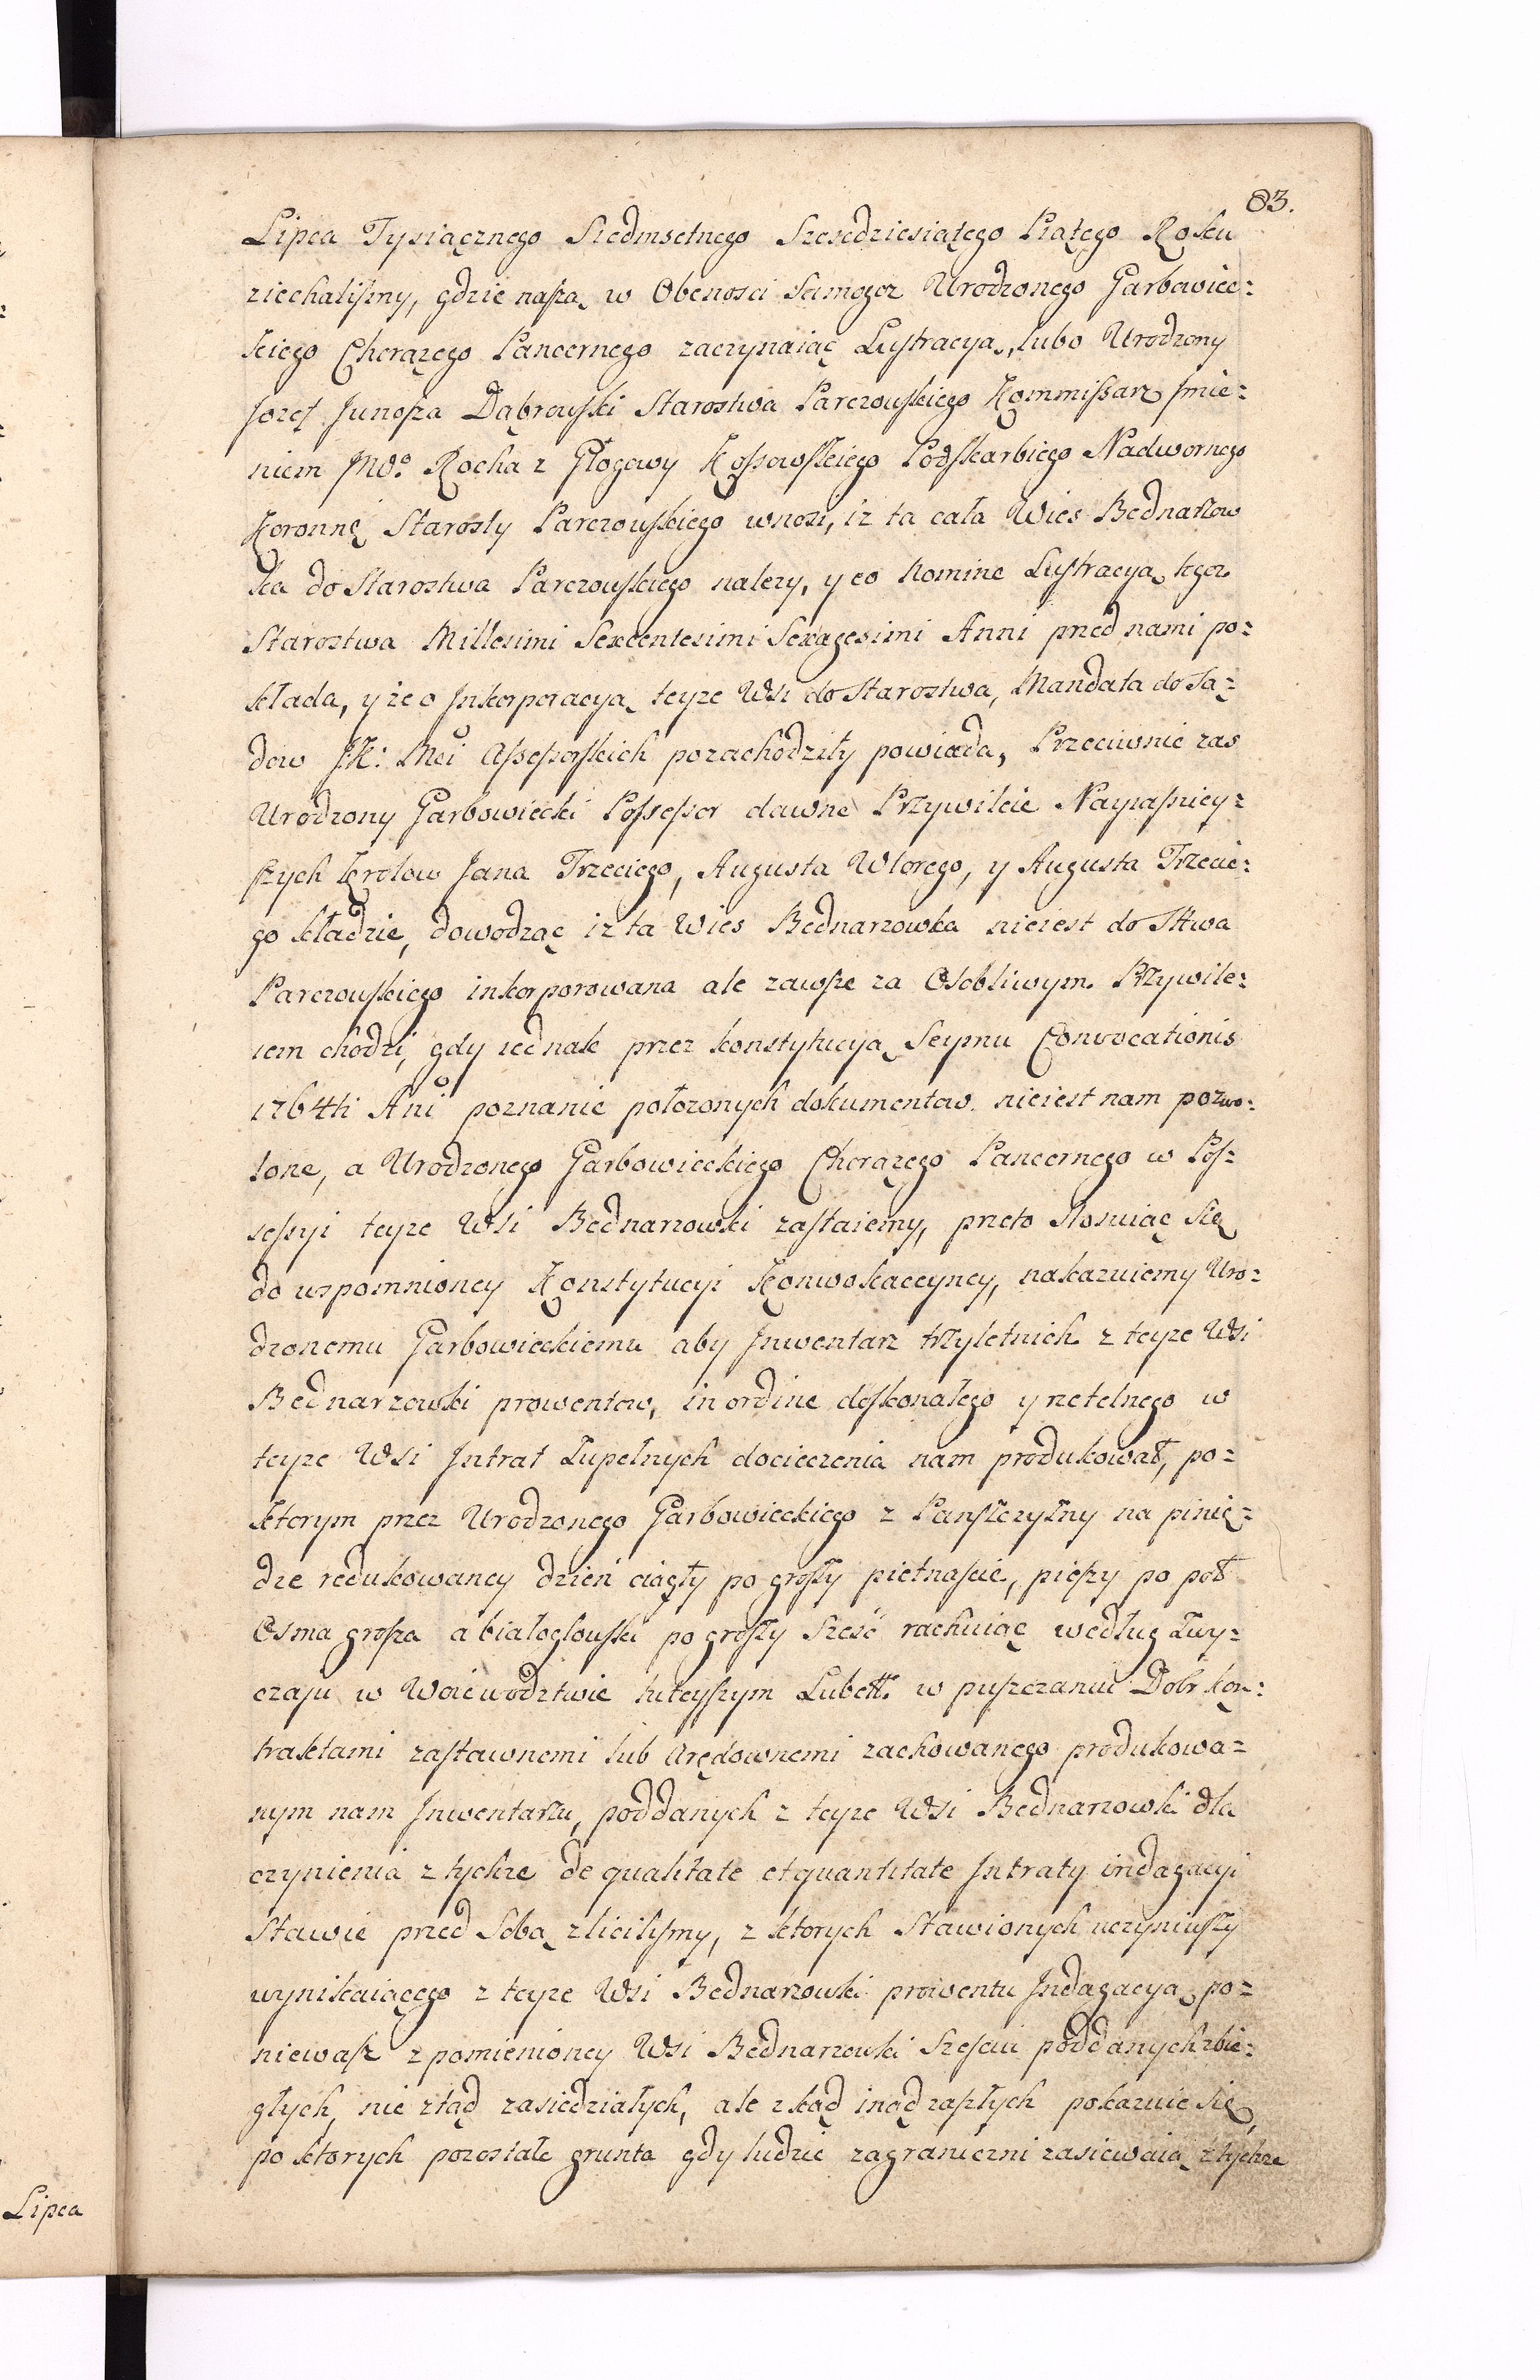 83.
Lipca Tysiącznego Siedmsetnego Szescdziesiątego Piątego Roku
ziechalismy, gdzie naszą w Obcnosci Samegoz Urodzonego Garbowiec=
kiego Chorązego Pancernego zaczynaiąc Lustracyą, lubo Urodzony
Jozef Junosza Dąbrowski Starostwa Parczowskiego Kommissarz Jmie=
niem JWo Rocha z Głogowy Kossowskiego Podskarbiego Nadwornego
Koronne Starosty Parczowskiego wnosi, iz ta cała Wies Bednarzow
ka do Starostwa Parczowskiego nalezy, y eo Nomine Lustracyą tegoz
Starostwa Millesimi Sexcentesimi Sexagesimi Anni przed nami po=
kłada, y ze o Jnkorporacyą teyze Wsi do Starostwa, Mandata do Są=
dow JK: Mci Assessorskich pozachodziły powiada, Przeciwnie zas
Urodzony Garbowiecki Possessor dawne Przywileie Nayiasniey=
szych Krolow Jana Trzeciego, Augusta Wtorego, y Augusta Trzecie=
go kładzie, dowodząc iz ta Wies Bednarzowka nieiest do Sttwa
Parczowskiego inkorporowana ale zawsze za Osobliwym Przywile=
iem chodzi, gdy iednak przez konstytucyą Seymu Convocationis
1764ti Ani poznanie połozonych dokumentow nieiest nam pozwo=
lone, a Urodzonego Garbowieckiego Chorązego Pancernego w Pos=
sessyi teyze Wsi Bednarzowki zastaiemy, przeto stosuiąc się
do wspomnioney Konstytucyi Konwokacciney, nakazuiemy Uro=
dzonemu Garbowieckiemu aby Jnwentarz trzyletnich z teyze Wsi
Bednarzowki prowentow, in ordine doskonałego y rzetelnego w
teyze Wsi Jntrat Zupełnych docieczenia nam produkował, po=
ktorym przez Urodzonego Garbowieckiego z Panszczyzny na pinię=
dze redukowaney dzień ciągły po groszy piętnascie, pieszy po poł
Osma grosza a białogłowski po groszy Sześć rachuiąc według Zwy=
czaiu w Woiewodztwie tuteyszym Lubell. w puszczaniu Dobr kon=
traktami zastawnemi lub Arędownemi zachowanego produkowa=
nym nam Jnwentarzu, poddanych z teyze Wsi Bednarzowki dla
czynienia z tychze de qualitate et quantitate Jntraty indagacyi
Stawić przed Sobą zliciliśmy, z ktorych Stawionych uczyniwszy
wynikaiącego z teyze Wsi Bednarzowki prowentu Jndagacyą, po=
niewasz z pomienioney Wsi Bednarzowki Szesciu poddanych zbie=
głych, nie ztąd zasiedziałych, ale zkąd inąd zaszłych pokazuie się,
po ktorych pozostałe grunta gdy ludzie zagraniczni zasiewaią z tychze
Lipca